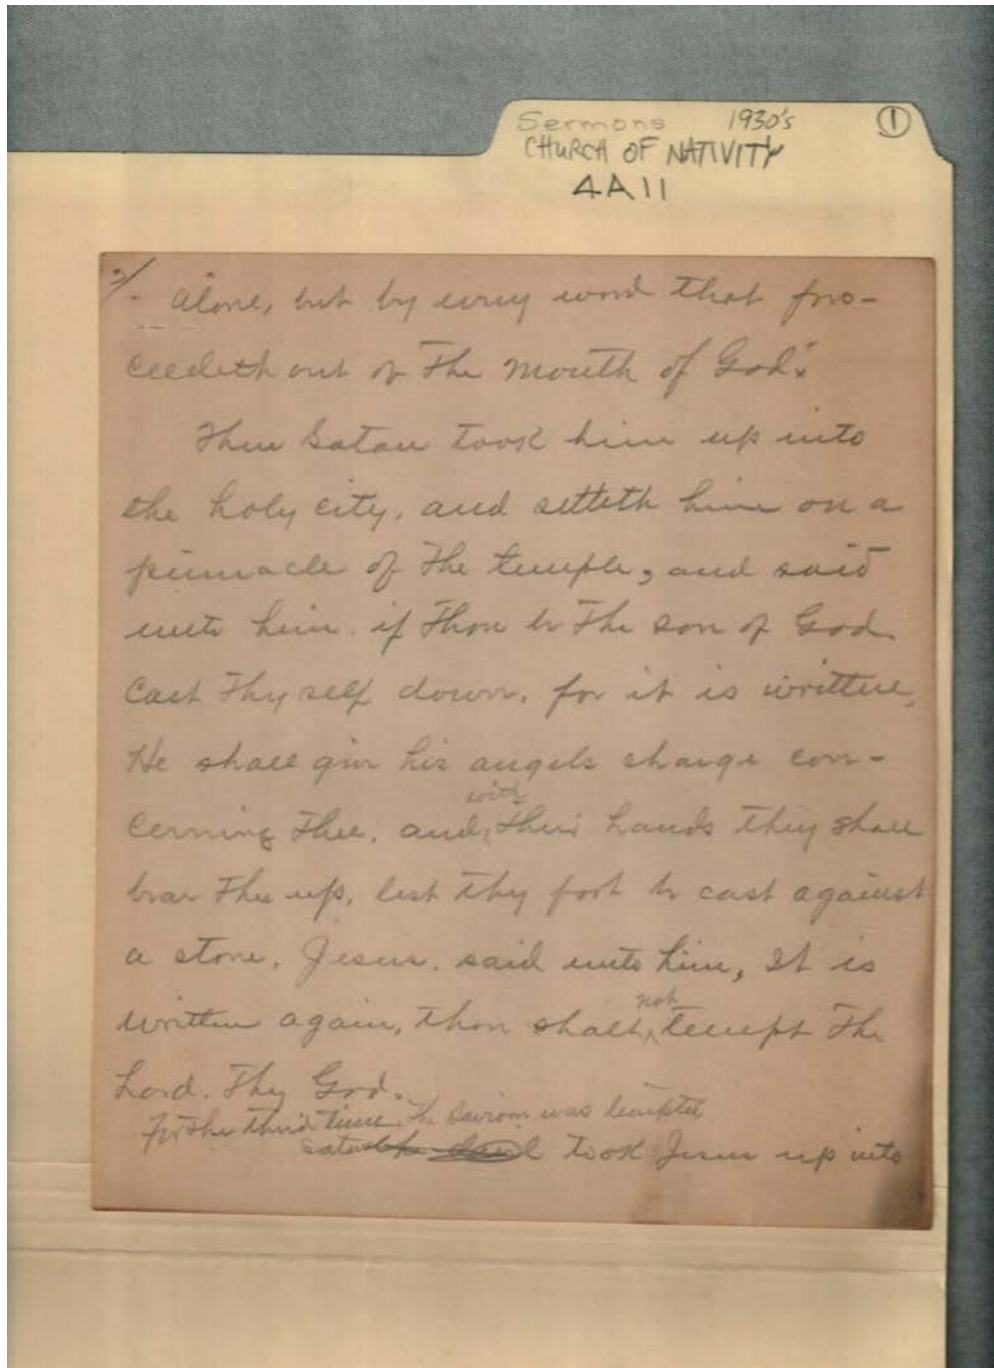 Sermons 1930's ①
CHURCH OF NATIVITY
4A11
2/
alone, but by every word that pro-
ceedeth out of the mouth of God".
Then Satan took him up into
the holy city, and setteth him on a
pinnacle of the temple, and said
unto him. if Thou be The son of God.
Cast Thy self down. for it is written,
He shall give his angels charge con-
cerning Thee. and with their hands they shall
bear Thee up, lest thy foot be cast against
a stone. Jesus. said unto him, It is
written again, thou shalt not tempt The
Lord. Thy God.
For the third time, the Saviour was tempted,
Satan took Jesus up into